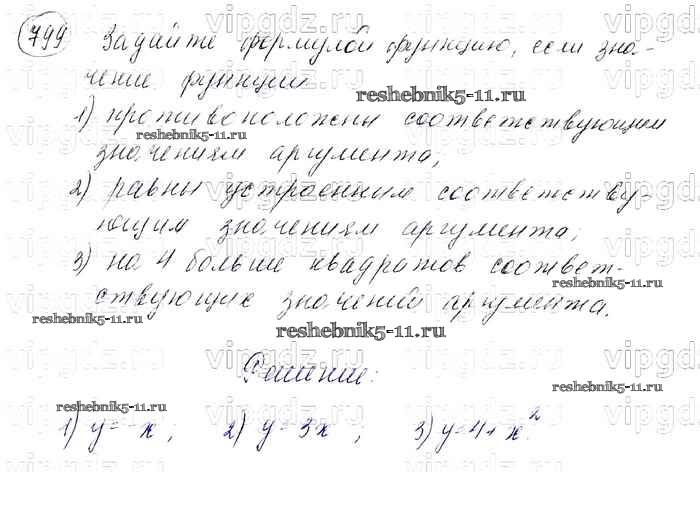 799 Задайте формулой функцию, если зна-
чение функции
reshebnik5-11.ru
1) противоположны соответствующим
reshebnik5-11.ru
значениям аргумента;
2) равны утроенным соответству-
ющим значениям аргумента;
3) на 4 больше квадратов соответ-
ствующих значений аргумента.
reshebnik5-11.ru
reshebnik5-11.ru
Решение:
reshebnik5-11.ru
reshebnik5-11.ru
1) y = -x ; 2) y = 3x ; 3) y = 4 + x².